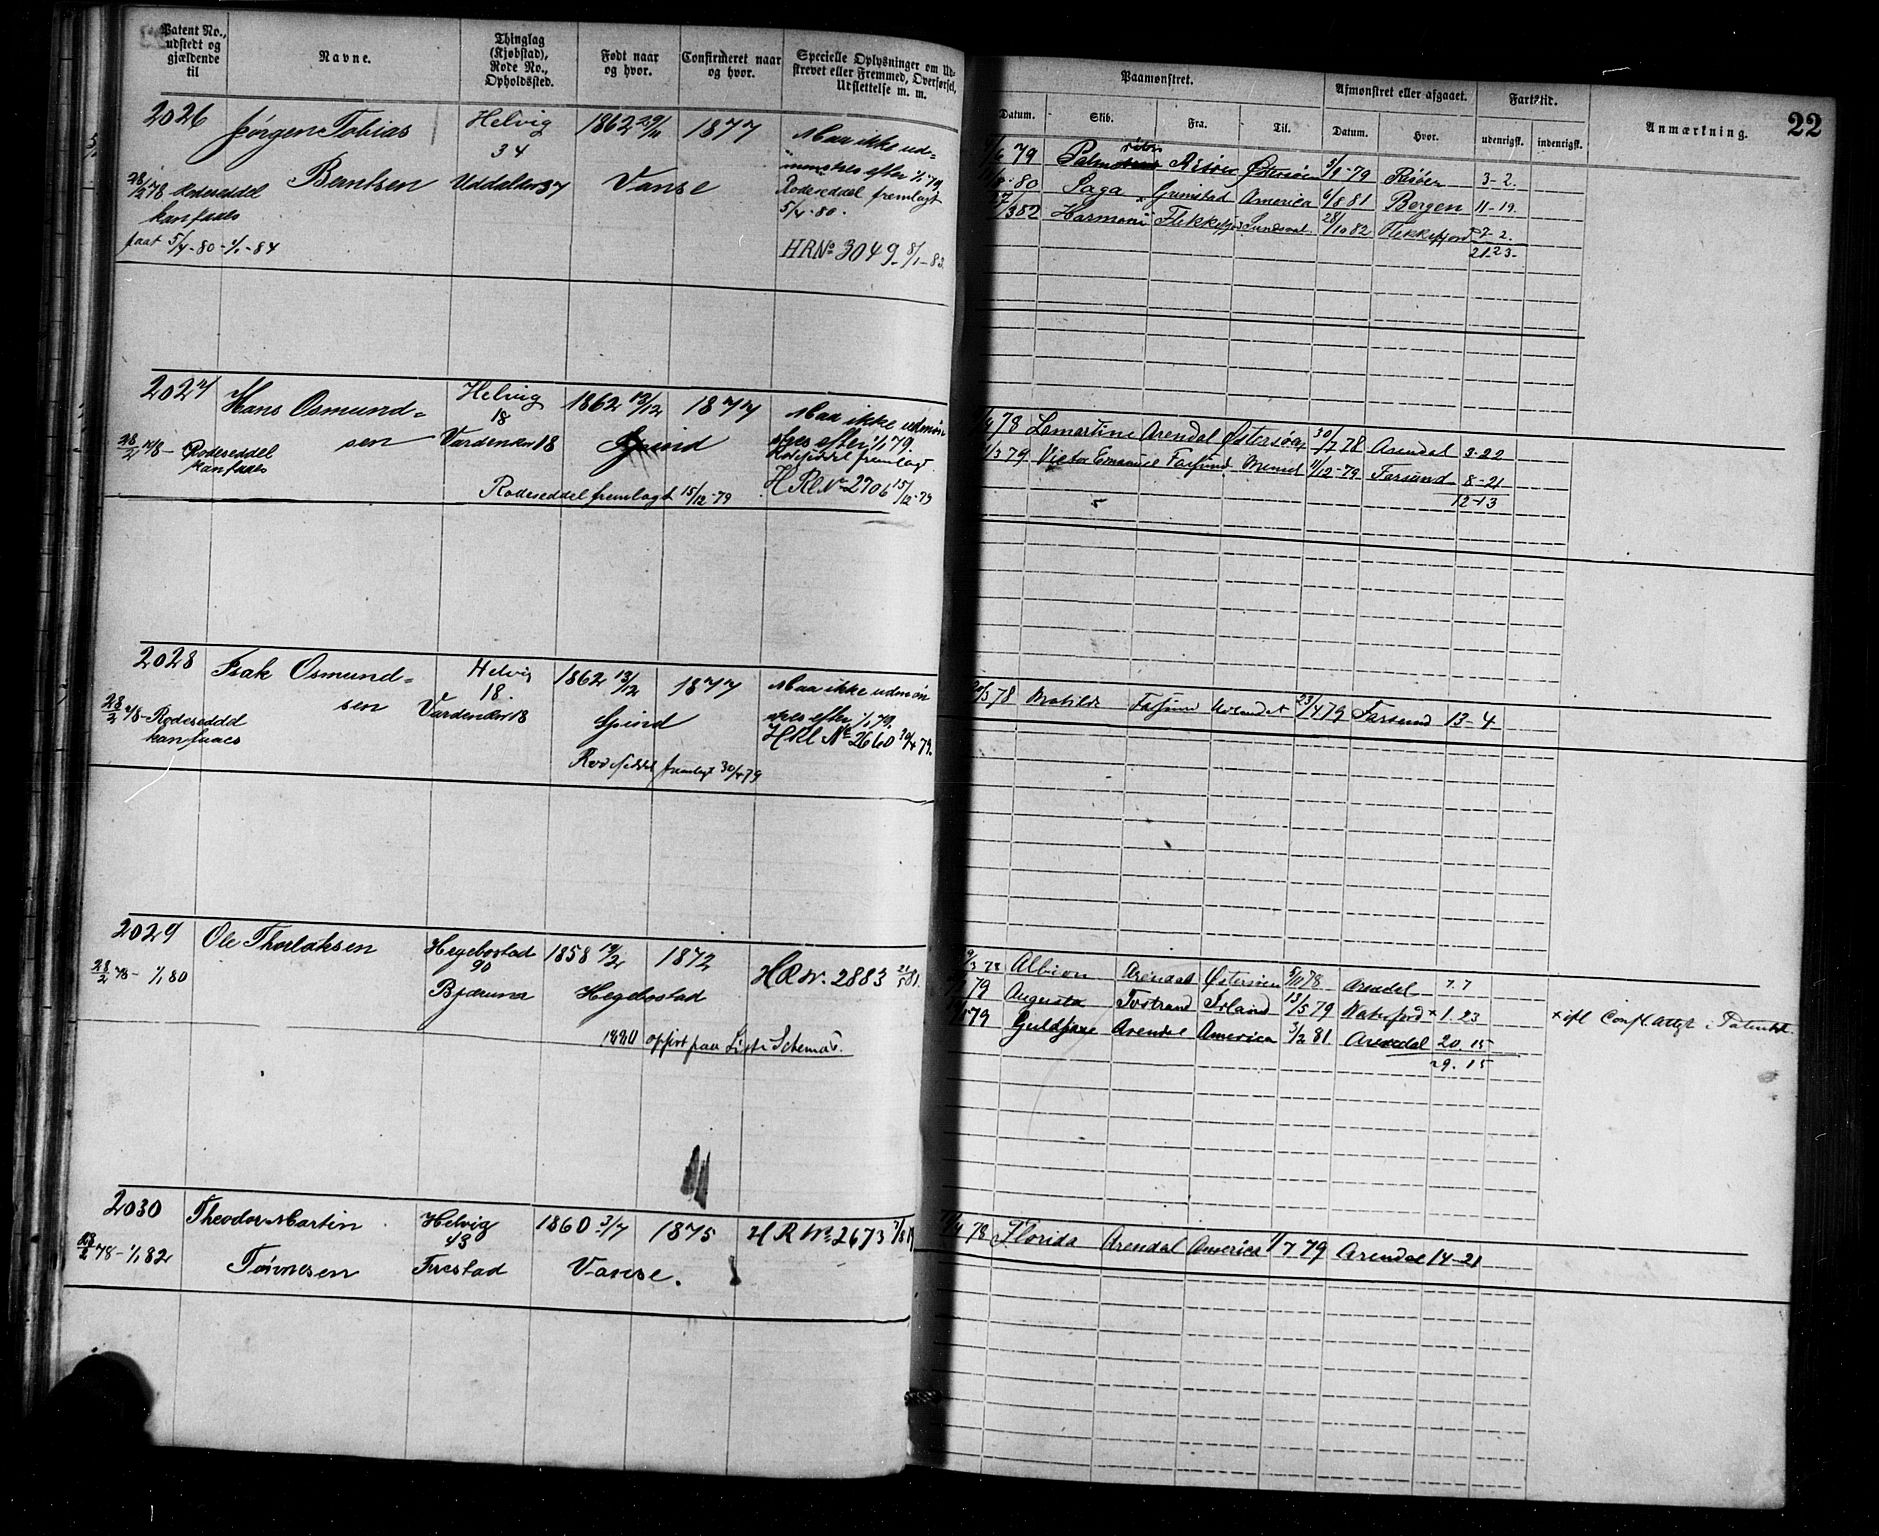 Patent No., udstedt og gjældende til
Navne.
Thinglag (Kjøbstad), Rode No., Opholdssted.
Født naar og hvor.
Confirmeret naar og hvor.
Specielle Oplysninger om Udstrevet eller Fremmed, Overførsel, Udslettelse m. m.
Paamønstret.
Afmønstret eller afgaaet.
Fartstid.
Anmærkning.
22
Datum.
Skib.
Fra.
Til.
Datum.
Hvor.
udenrigsk.
indenrigsk.
2026 Jørgen Tobias Helvig 1862 29/11 1877 Maa ikke ud=
34 mønstres efter 1/1 79
28/2 78 Rodeseddel Berntsen Uddalen 37 Vanse Rodeseddel fremlagt
kan faaes 5/4-80.
faat 5/4-80-1/1-84 HRNo 3049 8/1-83.
79 Palm Østersøen 5/9-79 Risøer 3-2.
80 Saga Grimstad America 6/8 81 Bergen 11-19.
82 Harmoni Flekkefj Sundsval 28/10 82 Flekkefjord 7-2.
21-23-
2027 Hans Osmund= Helvig 1862 13/12 1877 Maa ikke udmøn
18 stres efter 1/1 79.
28/2 78- Rodeseddel sen Vardenær 18 Spind Rodeseddel fremlagt
kan faaes
Rodeseddel fremlagt 15/12-79 HRNo 2706 15/12-79
78 Lamartine Arendal Østersøen 30/7 78 Arendal 3-22
79 Victor Emanuel Farsund Memel 11/12-79 Farsund 8-21
12-13
2028 Isak Osmund= Helvig 1862 13/12 1877 Maa ikke udmøn
18. stres efter 1/1 79.
28/2 78-Rodeseddel sen Vardenær 18 Spind HRl No 2660 30/4 79.
kan faaes
Rodeseddel fremlagt 30/4 79
78 Matilde Farsund 23/4 79 Farsund 13-4
2029 Ole Thorlaksen Hegebostad 1858 1872
90
28/2 78- 1/1 80 Bjærum Hegebostad 2883 21/5 81.
1880 opført paa Liste Schema
78 Albion Arendal Østersøen 5/11 78 Arendal 7.7
79 Augusta Tvestrand Irland 13/5 79 Waterford × 1.23 × ifl Conf. Attest i Patentet.
79 Guldfaxe Arendal America 3/2 81. Arendal 20.15
29.15
2030 Theodor Martin Helvig 1860 3/7 1875 HRNo 2673
43
28/2 78-1/1 82 Tønnesen Vanse.
78 Florida Arendal America 7 79 Arendal 14-21